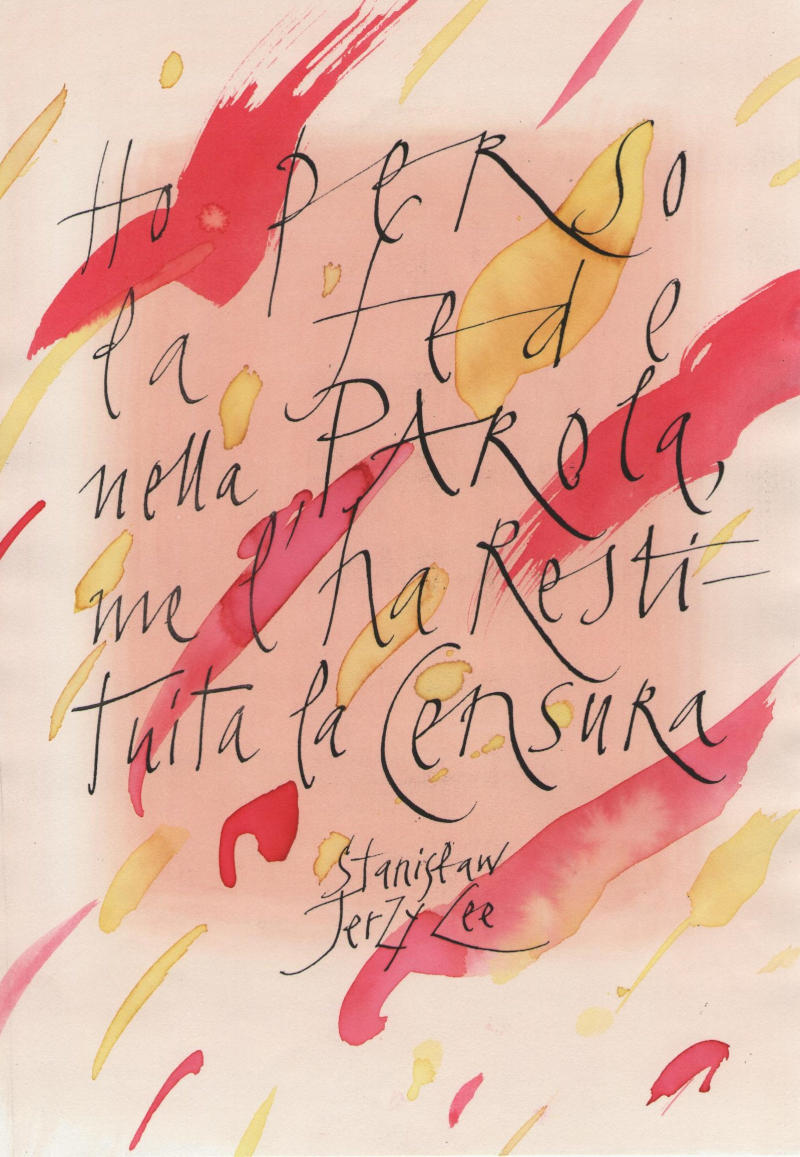 Ho perso
la fede
nella PARola,
me l'ha Resti-
tuita la CensuRa
Stanisław
Jerzy Lee